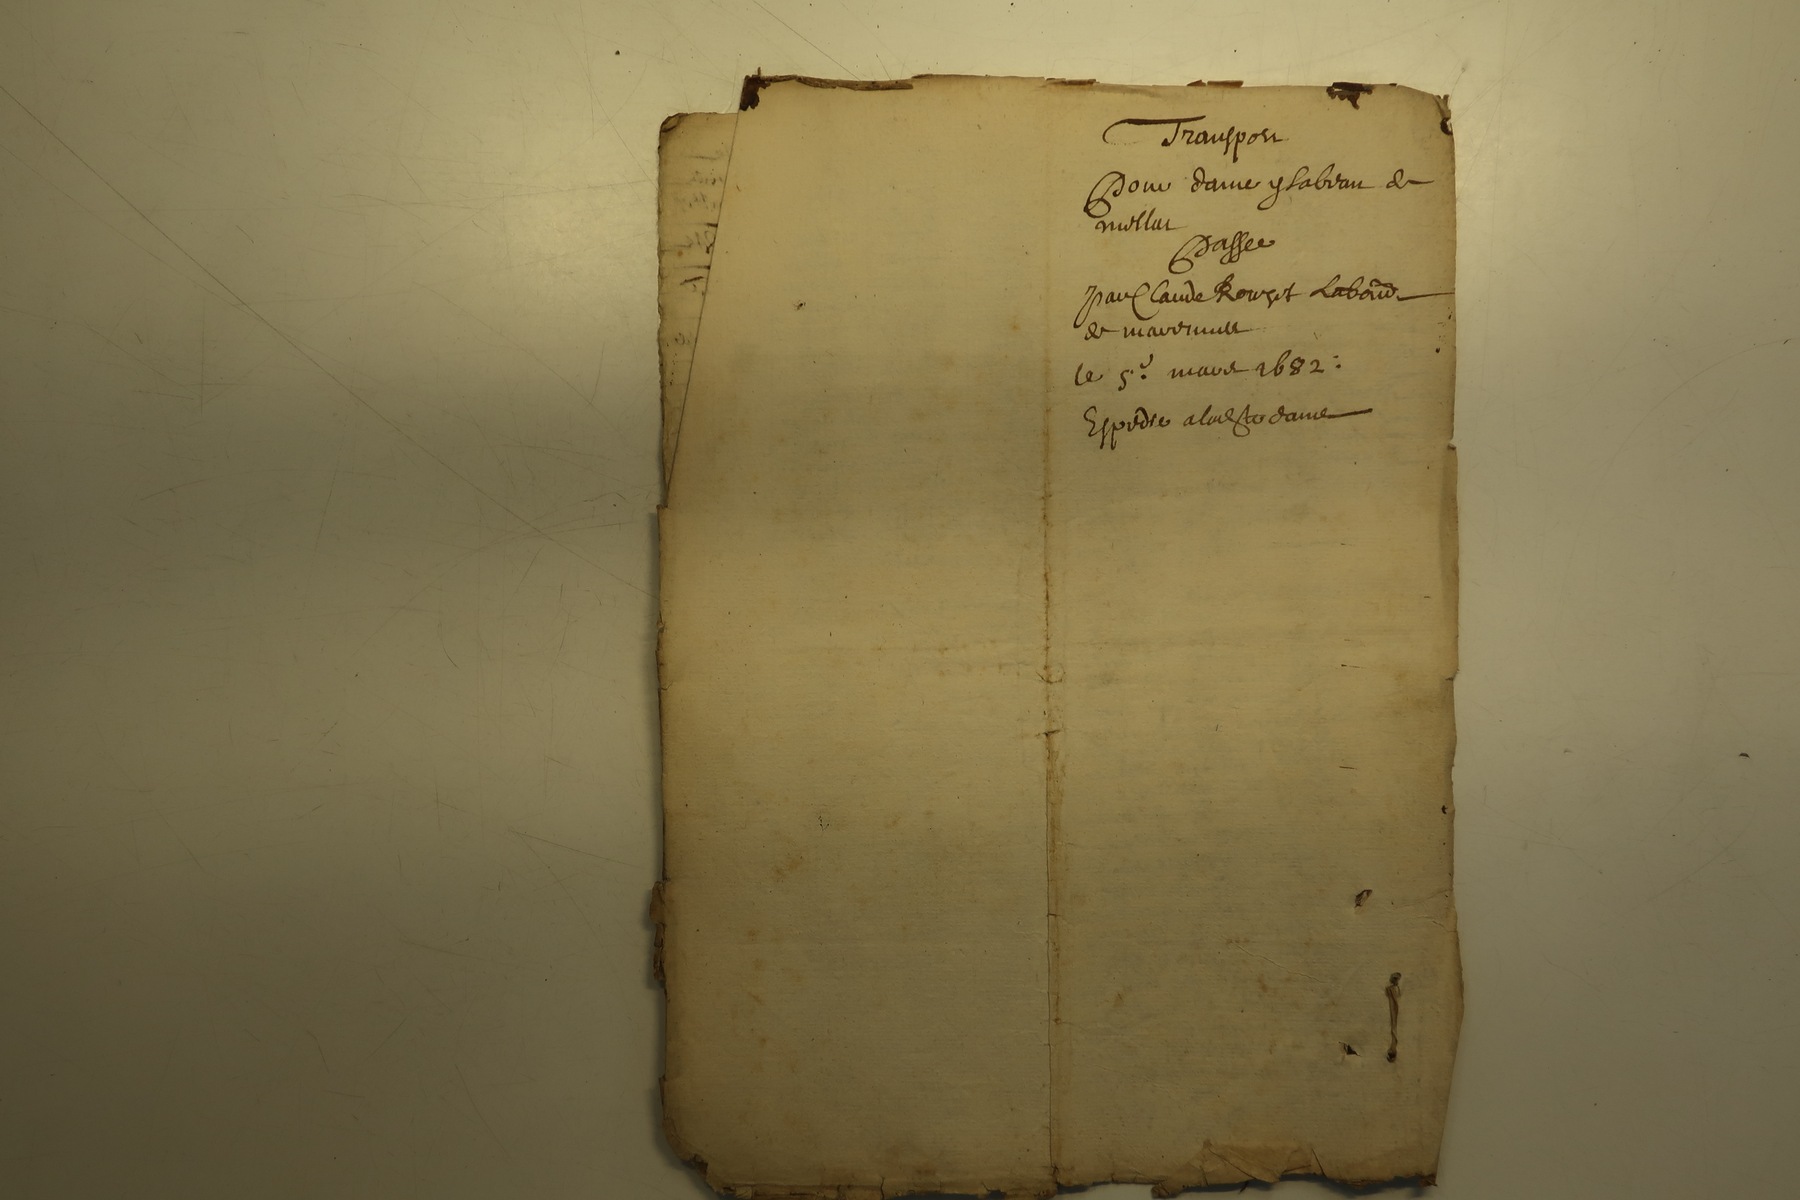 Transport
Pour dame ysabeau de
millet
Passee
par Claude Rouget Labour
de
le 5e mars 1682:
Expedie a lad dame